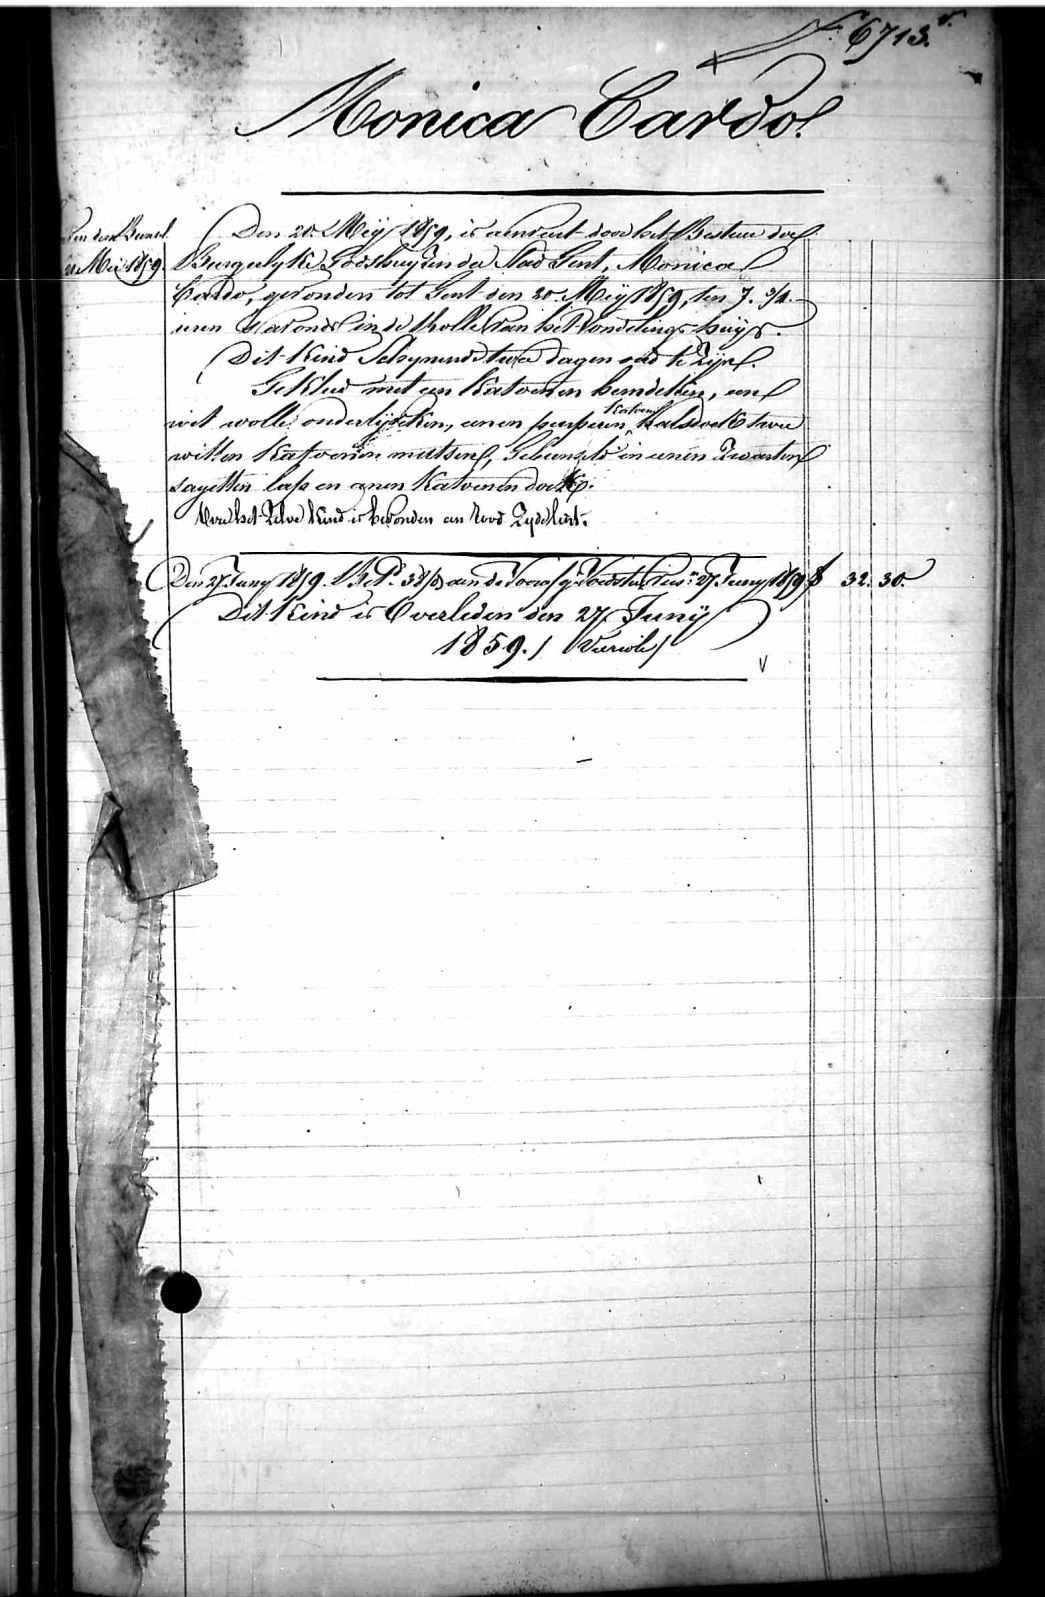 N.° 6713.
Monica Cardo.
Den 20. Meij 1859, is aenveirt door het Bestuer der
Burgerlyke Godshuyzen der Stad Gent, Monica
Cardo, gevonden tot Gent den 20. Meij 1859, ten 7. 3/4.
uren 'S avonds in de Rolle van het Vondelings huijs.
Dit Kind Schynende twee dagen oud te Zijn.
Gekleed met een katoenen hemdeken, een
wit wolle onderlijveken, eenen purperen katoenen halsdoek twee
witten katoenen mutsen, Gebunseld in eenen Zwarten
sayetten lap en eenen katoenen doek.
Voor het Zelve Kind is bevonden een rood Zyde lint.
Den 27. Juny 1859. aen de 27. Juny 1859 32. 30.
Dit Kind is Overleden den 27 Junij
1859. / Variole /